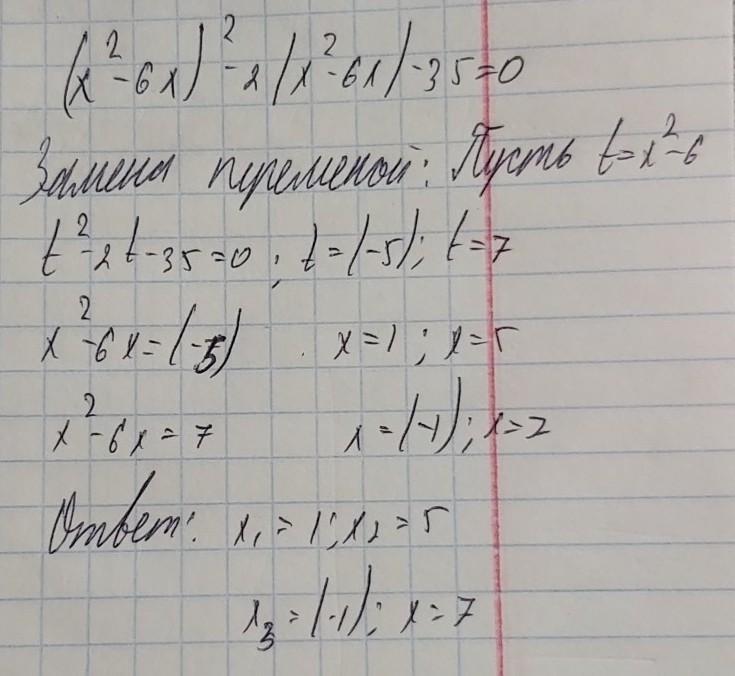 (x²-6x)²-2(x²-6x)-35=0
Замена переменой: Пусть t=x²-6
t²-2t-35=0; t=(-5); t=7
x²-6x=(-5) x=1; x=5
x²-6x=7 x=(-1); x=7
Ответ: x₁=1; x₂=5
x₃=(-1); x=7